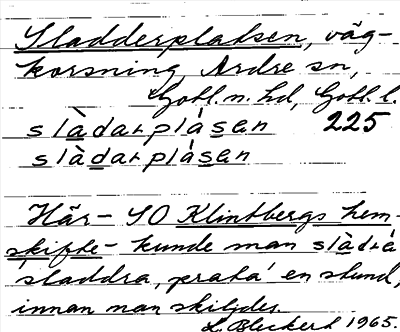 Sladderplatsen, väg-
korsning, Ardre sn,
Gotl. n. hd, Gotl. l.
slàdarplásan 225
slàdarplásan
Här - SO Klintbergs hem-
skifte - kunde man slàdrá
sladdra, 'prata' en stund,
innan man skiljdes.
L. Bleckert 1965.